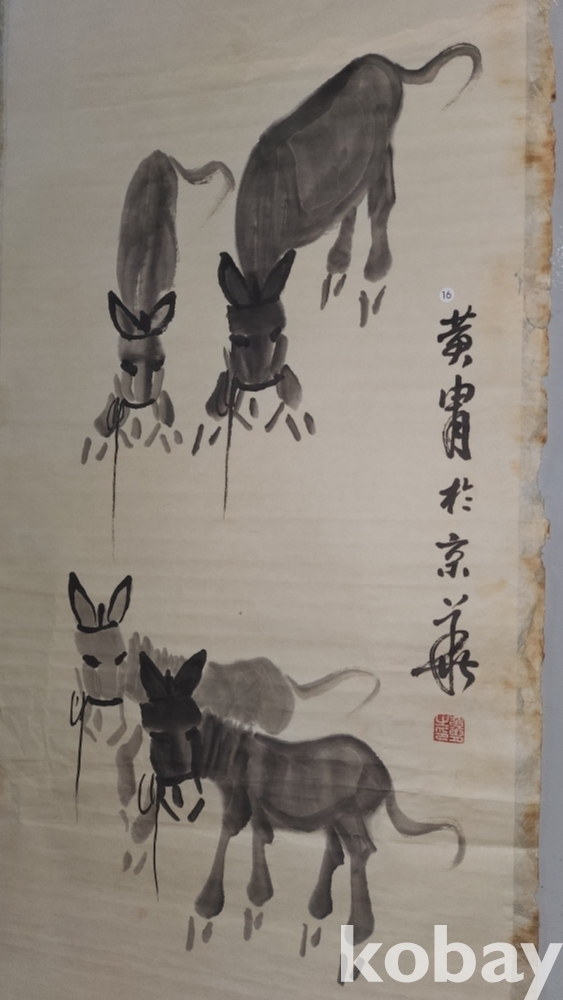 16
黄胄於京華
kobay